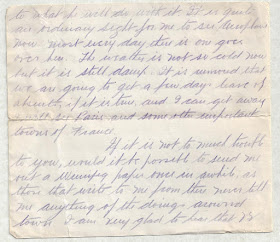 to what he will do with it It is quite
an ordinary sight for me to see aeroplanes
now most every day there is one goes
over here. The weather is not so cold now
but it is still damp. It is rumored that
we are going to get a few days leave of
absence, if it is true, and I can get away
I will see Paris and some other important
towns of France.
If it is not to much trouble
to you, would it be possible to send me
out a Winnipeg paper once in awhile, as
those that write to me from there never tell
me anything of the doings around
town. I am very glad to hear that